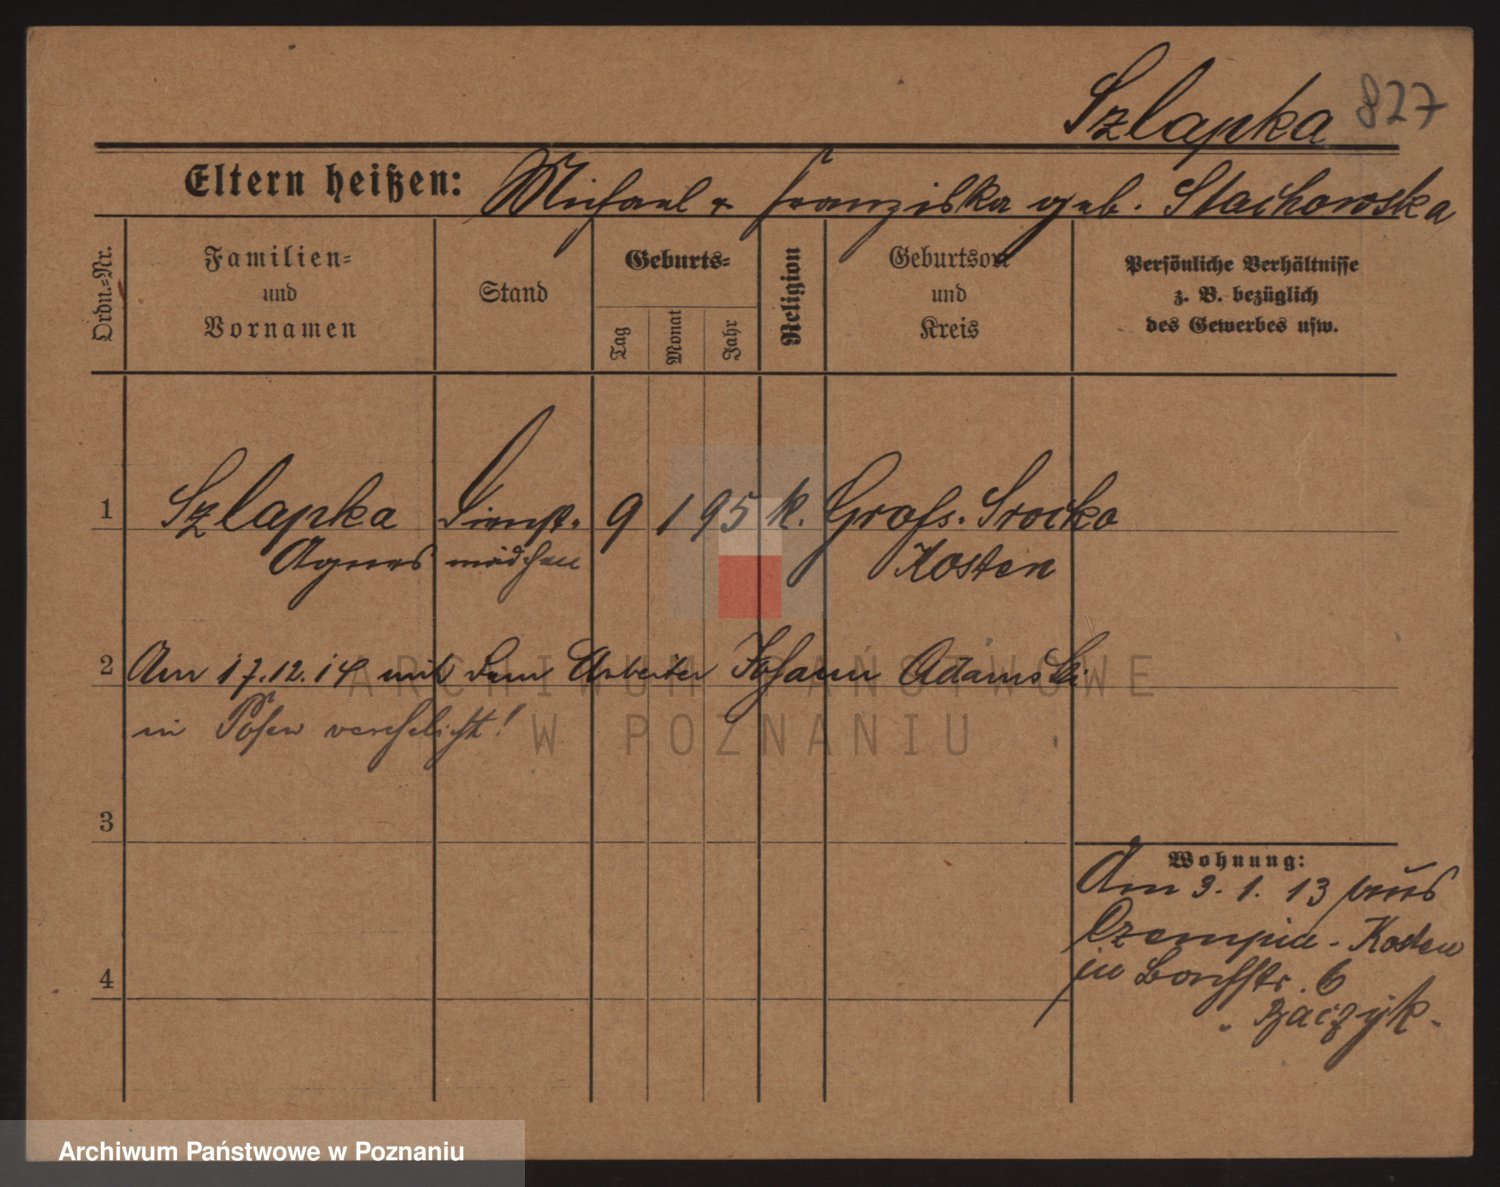 Szlapka 827
Eltern heißen: Michael & Franziska geb. Stachowska
Ordn.-Nr.
Familien-
und
Vornamen
Stand
Geburts-
Tag
Monat
Jahr
Religion
Geburtsort
und
Kreis
Persönliche Verhältnisse
z. B. bezüglich
des Gewerbes usw.
1 Szlapka Dienst- 9 1 95 k. Gross. Srocko
Agnes mädchen Kosten
2 Am 17.12.14 mit dem Arbeiter Johann Adamski
in Posen verehelicht!
3
Wohnung:
Am 3. 1. 13 aus
Czempin - Kosten
in 6
4
ARCHIWUM PAŃSTWOWE
W POZNANIU
Archiwum Państwowe w Poznaniu